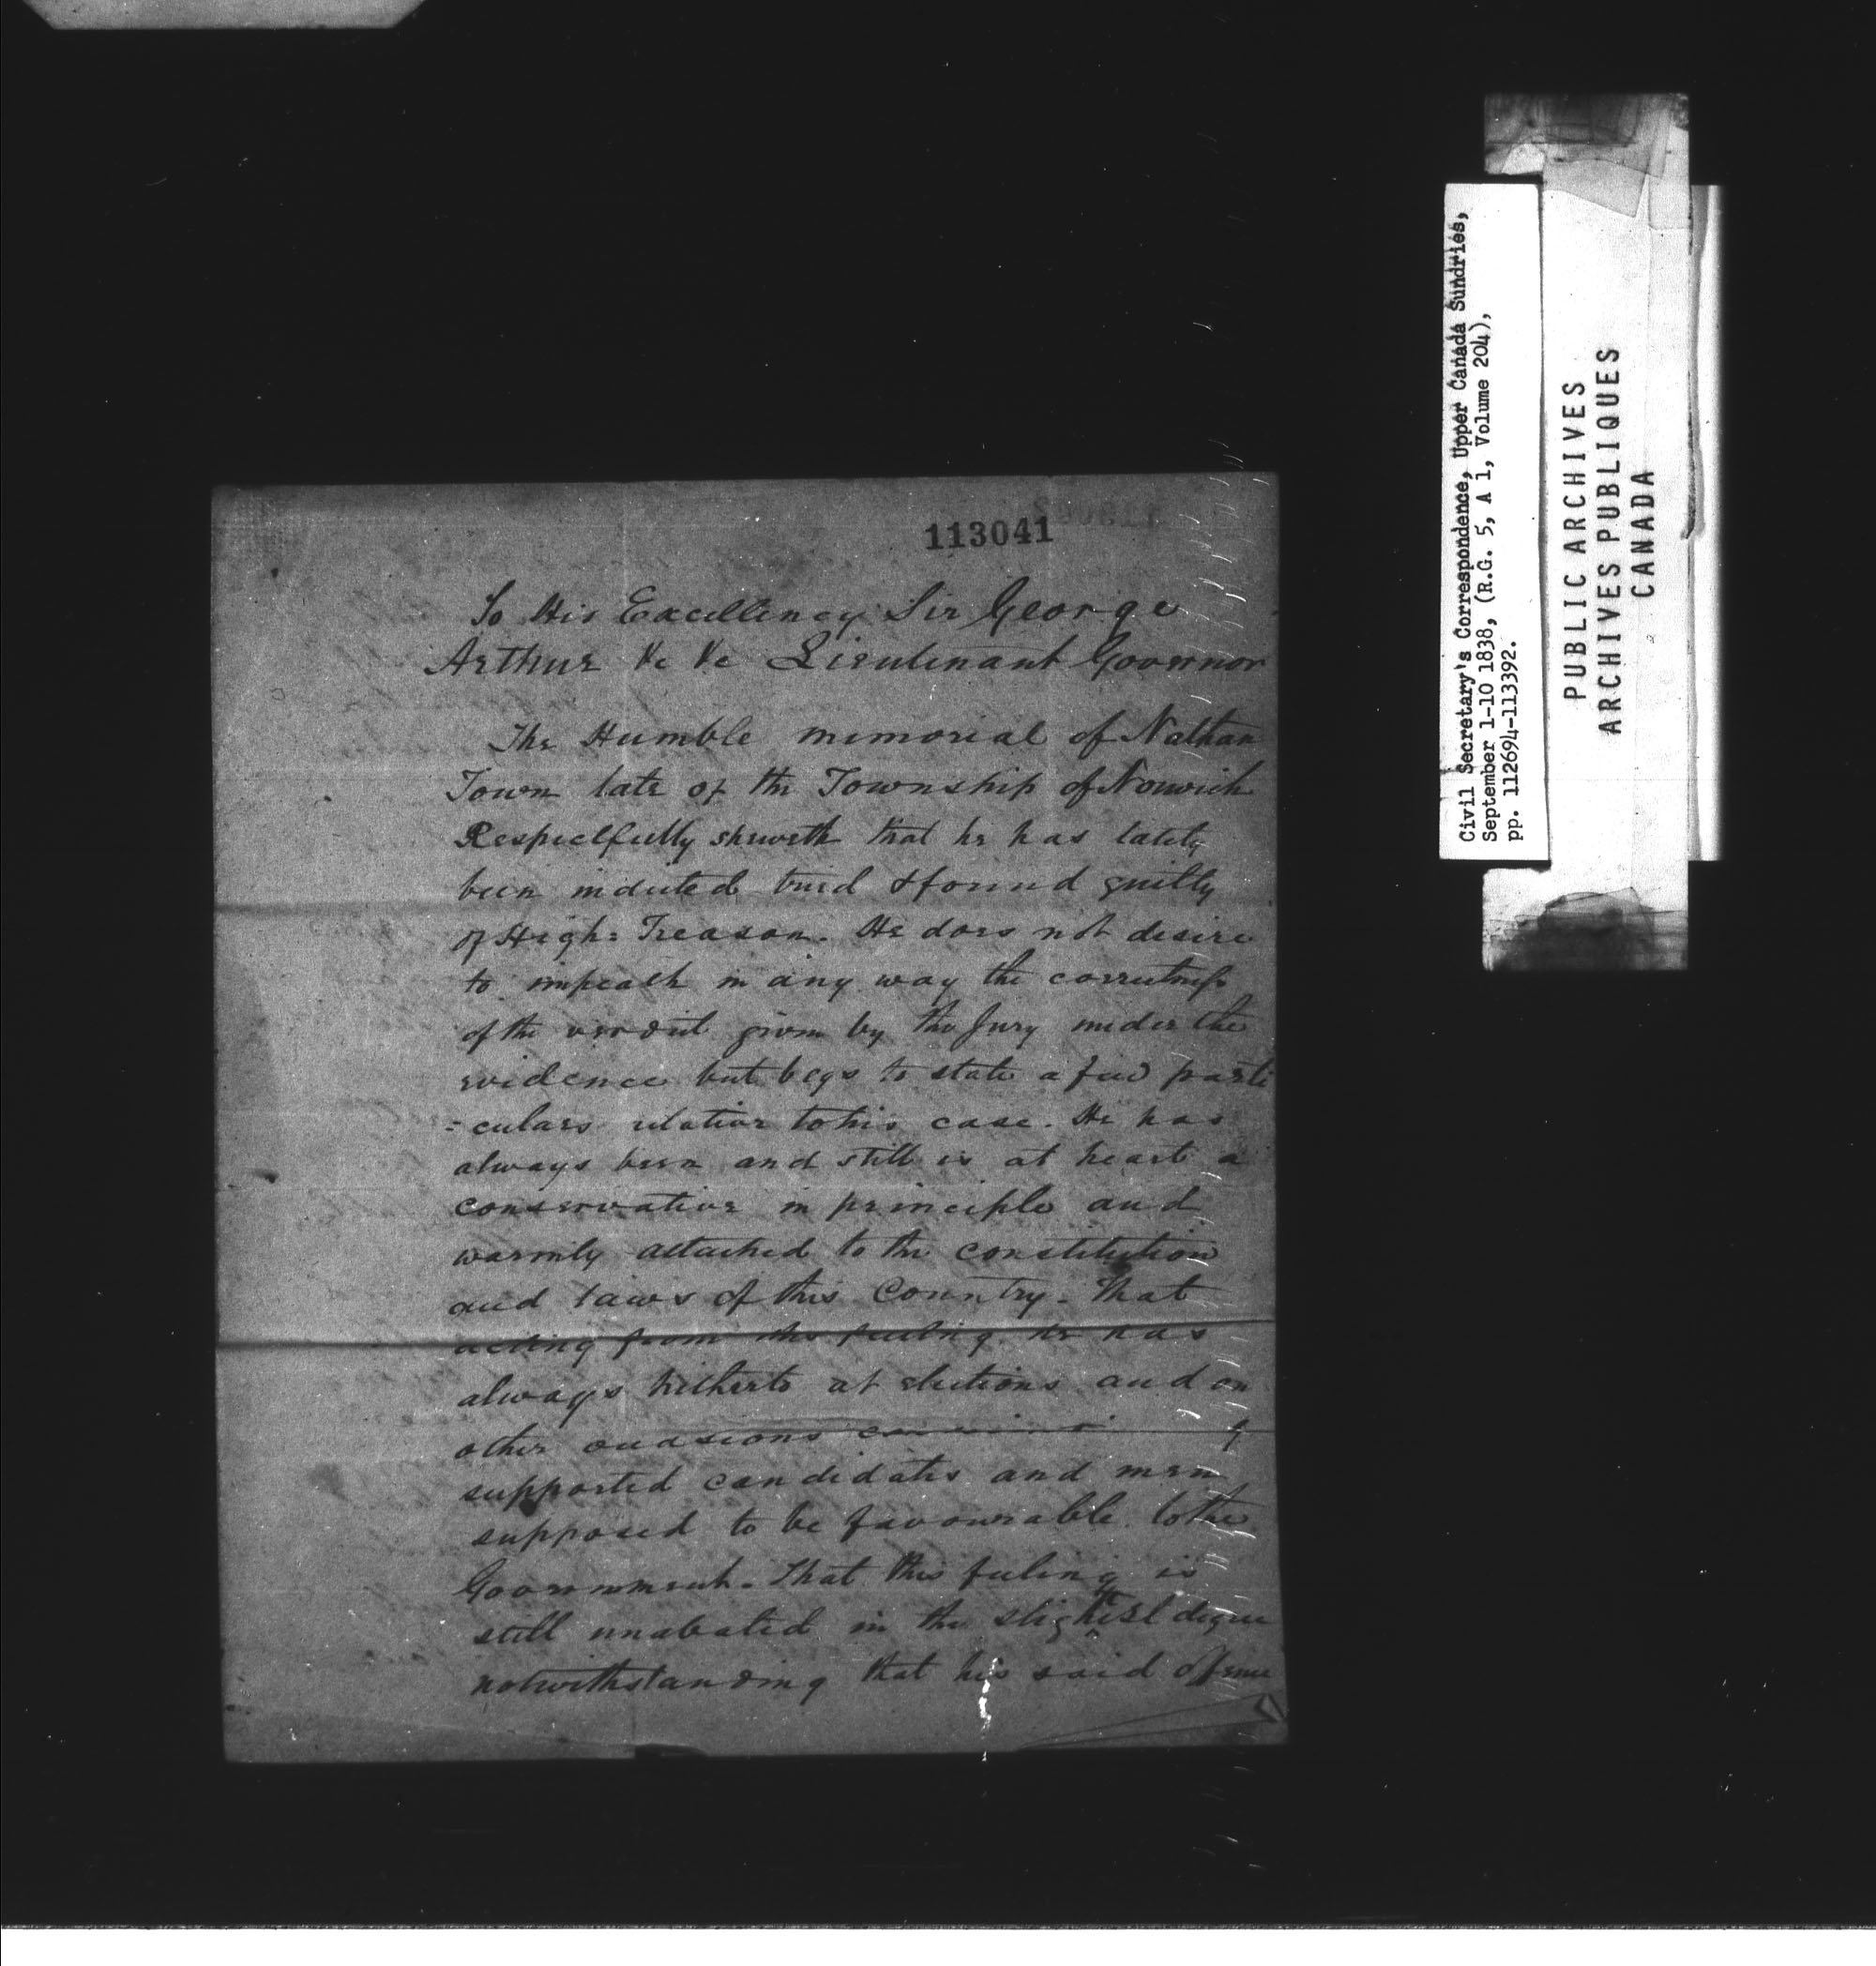 113041
To His Excellency Sir George
Arthur &c &c Lieutenant Governor
The Humble memorial of Nathan
Town late of the Township of Norwich
Respectfully sheweth that he has lately
been indicted tried & found guilty
of High= Treason. He does not desire
to impeach in any way the correctness
of the verdict given by the Jury under the
evidence but begs to state a few parti
=culars relative to his case. He has
always been and still is at heart a
conservative in principle and
warmly attached to the constitution
and laws of this Country. That
acting from this feeling he has
always hitherto at elections and on
other occasions
supported candidates and men
supposed to be favourable to the
Government. That this feeling is
still unabated in the slightest degree
notwithstanding that his said offence
Civil Secretary's Correspondence, Upper Canada Sundries,
September 1-10 1838, (R.G. 5, A 1, Volume 204),
pp. 112694-113392.
PUBLIC ARCHIVES
ARCHIVES PUBLIQUES
CANADA